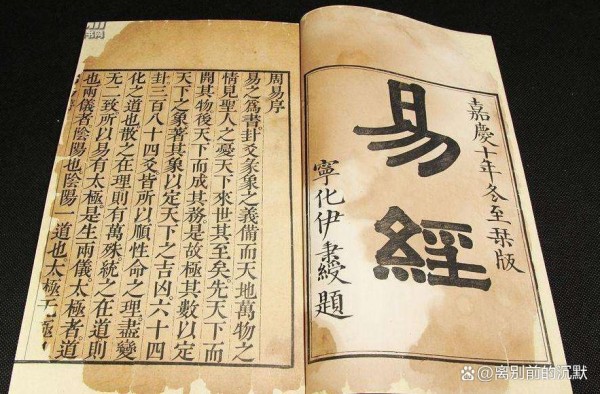 嘉慶十年冬至栞版
易經
寧化伊秉綬題
周易序
易之爲書卦爻彖象之義備而天地萬物之
情見聖人之憂天下來世其至矣。先天下而
開其物後天下而成其務是故極其數以定
天下之象著其象以定天下之吉凶。六十四
卦三百八十四爻皆所以順性命之理盡變
化之道也散之在理則有萬殊統之在道則
无二致所以易有太極是生兩儀。太極者。道
也兩儀者陰陽也陰陽一道也太極无極
@离别前的沉默